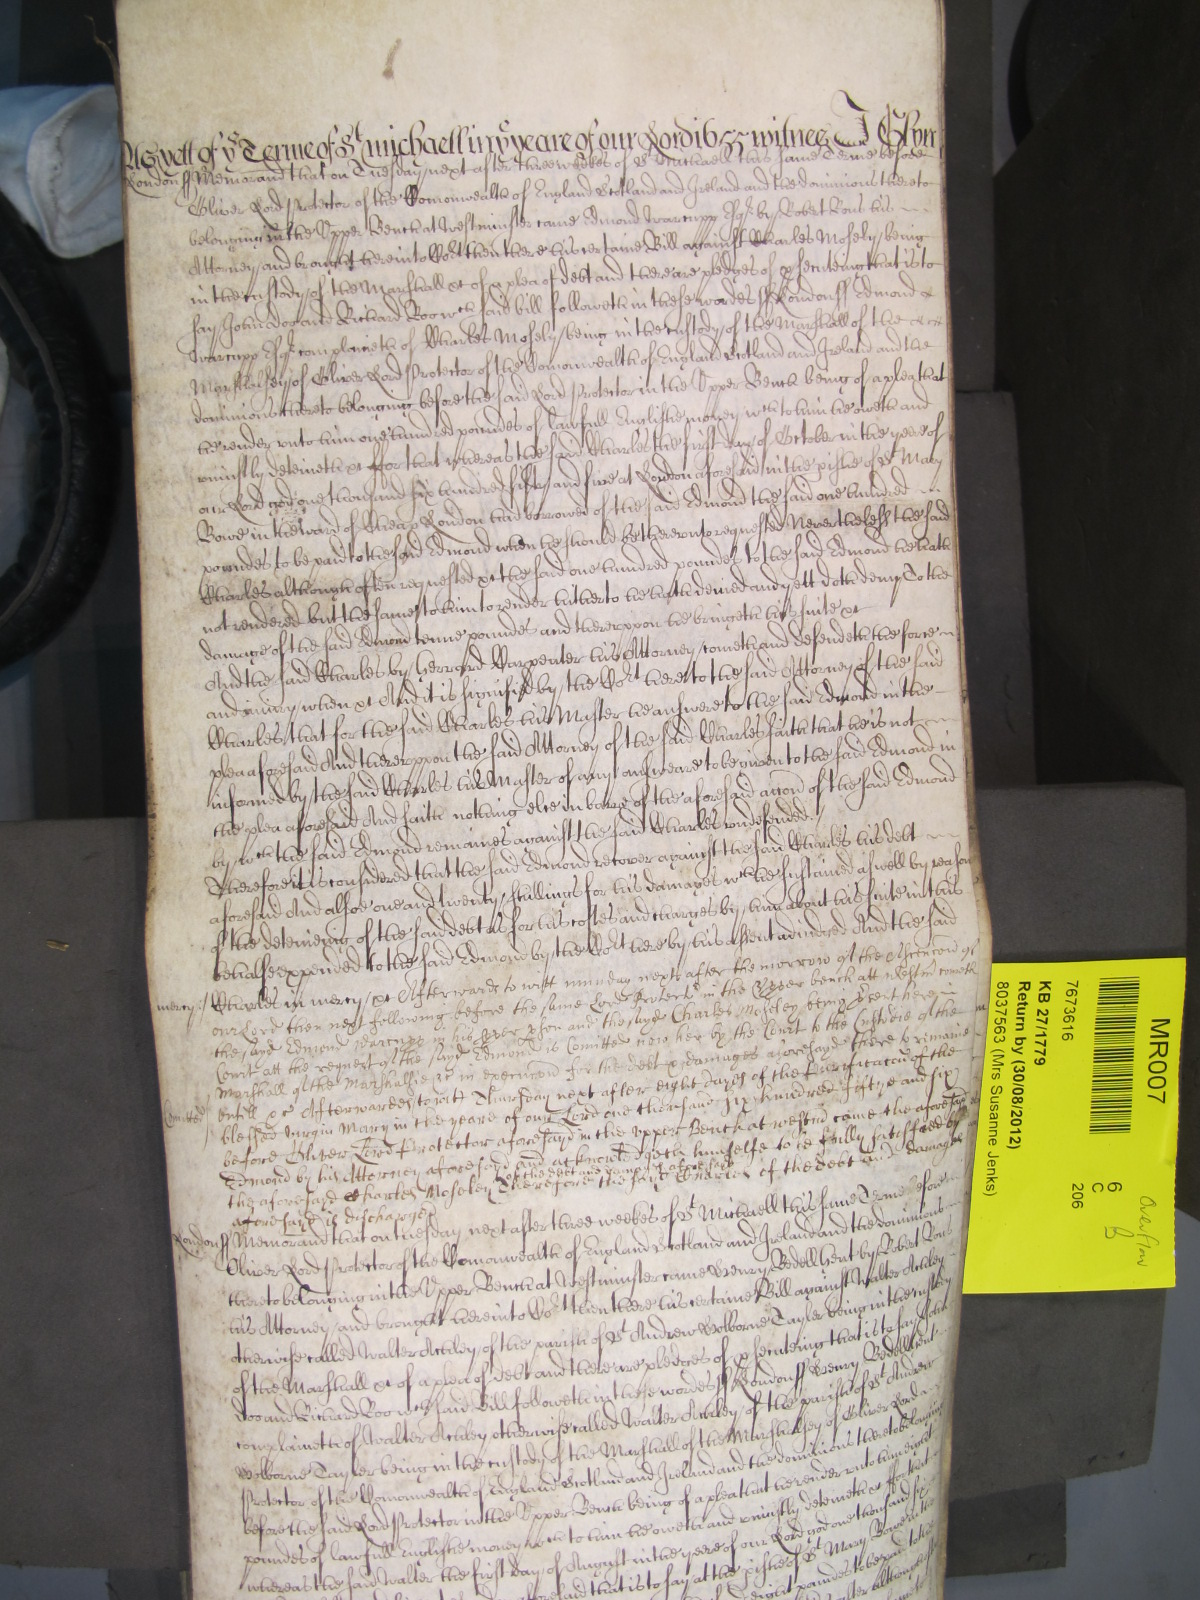 As yett of ye Terme of St Michaell in ye yeare of our Lord 1655 witnes J Glyn
London ss Memorand that on Tuesday next after three weekes of St Michaell this same Terme before
Oliver Lord Protector of the Comonwealth of England Scotland and Ireland and the dominions thereto
belonging in the Upper Bench at Westminster came Edmond Warcupp Esqr by Robert Rous his
Attorney and brought here into Cort then there his certaine Bill against Charles Mosely being
in the custody of the Marshall &c of a plea of debt and there are pledges of psecuteing that is to
say John Doo and Richard Roo wch said bill followeth in these wordes ss London ss Edmond
Warcupp Esqr complaineth of Charles Mosely being in the custody of the Marshall of the
Marshalsey of Oliver Lord Protector of the Comonwealth of England Scotland and Ireland and the
dominions thereto belonging before the said Lord Protector in the Upper Bench being of a plea that
he render unto him one hundred pounds of lawfull English money wch to him he oweth and
uniustly deteineth &c ffor that whereas the said Charles the first day of October in the yeare of
our Lord god one thousand six hundred fifty and five at London aforesaid in the pishe of St Mary
Bowe in the ward of Cheap London had borrowed of the said Edmond the said one hundred
pounds to be paid to the said Edmond when he should be thereunto requested Neverthelesse the said
Charles although often requested &c the said one hundred pounds to the said Edmond he hath
not rendered but the same to him to render hitherto he hath denied and yett doth deny To the
damage of the said Edmond tenne pounds and thereuppon he bringeth his suite &c
And the said Charles by Gerrard Carpenter his Attorney cometh and defendeth the force
and iniury when &c And it is signified by the Cort here to the said Attorney of the said
Charles that for the said Charles his Master he answere to the said Edmond in the
plea aforesaid And thereuppon the said Attorney of the said Charles saith that he is not
informed by the said Charles his Master of any answeare to be given to the said Edmond in
the plea aforesaid And saith nothing else in barre of the aforesaid accon of the said Edmond
by wch the said Edmond remaines against the said Charles undefended
Therefore it is considered that the said Edmond recover against the said Charles his debt
aforesaid And alsoe one and twenty shillings for his damages wch he sustained aswell by reason
of the deteineing of the said debt as for his costes and charges by him about his suite in this
behalfe expended to the said Edmond by the Cort here by his assent adiudged And the said
mercy Charles in mercy &c Afterwards to witt munday next after the morrow of the Ascencon of
our Lord then next following before the same Lord Protector in the Upper bench att westmr cometh
the sayd Edmond Warcupp in his pper pson and the sayd Charles Moseley being psent here in
Court att the request of the sayd Edmond is Comitted here by the Court to the Custodie of the
Marshall of the Marshallsie &c in execucon for the debt & damages aforesayd there to remaine
Comitted untill &c Afterwardes to witt Thursday next after eight dayes of the Purificacon of the
blessed virgin Mary in the yeare of our Lord one thousand six hundred fiftye and six
before Oliver Lord Protector aforesayd in the upper Bench at westmr came the aforesayd
Edmond by his Attorney aforesayd and acknowledgeth himselfe to be fully satisfied by
the aforesayd Charles Moseley of the debt and damages aforesayd Therefore the sayd Charles of the debt and damages
aforesayd is discharged
London ss Memorand that on tuesday next after three weekes of St Michaell this same Terme before
Oliver Lord Protector of the Comonwealth of England Scotland and Ireland and the dominions
thereto belonging in the Upper Bench at Westminster came Henry Bedell Gent by Robert Rous
his Attorney and brought here into Cort then there his certaine Bill against Walter Ackley
otherwise called Walter Ackley of the parish of St Andrew Holborne Tayler being in the custody
of the Marshall &c of a plea of debt and there are pledges of psecuteing that is to say John
Doo and Richard Roo wch said Bill followeth in these wordes ss London ss Henry Bedell gent
complaineth of Walter Ackley otherwise called Walter Ackley of the parish of St Andrew
Holborne Tayler being in the custody of the Marshall of the Marshallsey of Oliver Lord
Protector of the Comonwealth of England Scotland and Ireland and the dominions thereto belonging
before the said Lord Protector in the Upper Bench being of a plea that he render unto him eight
pounds of lawfull English money wch to him he oweth and uniustly deteineth &c ffor that
whereas the said Walter the first day of August in the yeere of our Lord god one thousand six
aforesaid that is to say at the pishe of St Mary Bowe in the
eight pounds to be paid to the
MR007
7673616
KB 27/1779
Return by (30/08/2012)
8037563 (Mrs Susanne Jenks)
6
C
206
Overflow